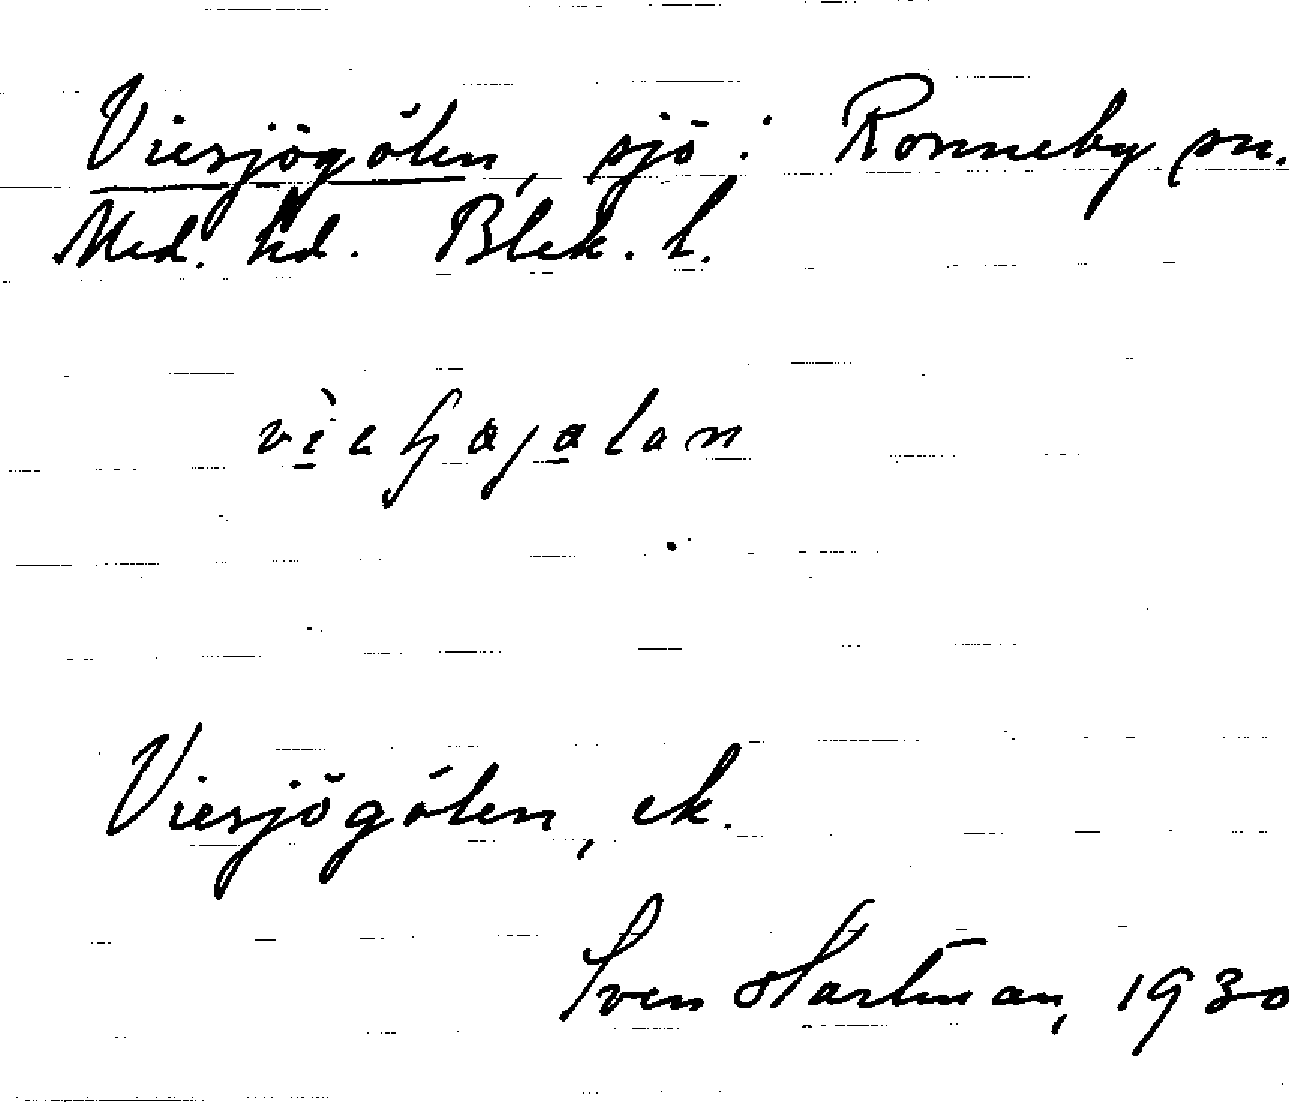 Viesjögölen, sjö i Ronneby sn.
Med. hd. Blek. l.
Viesjögölen, ek.
Sven Hartman, 1930